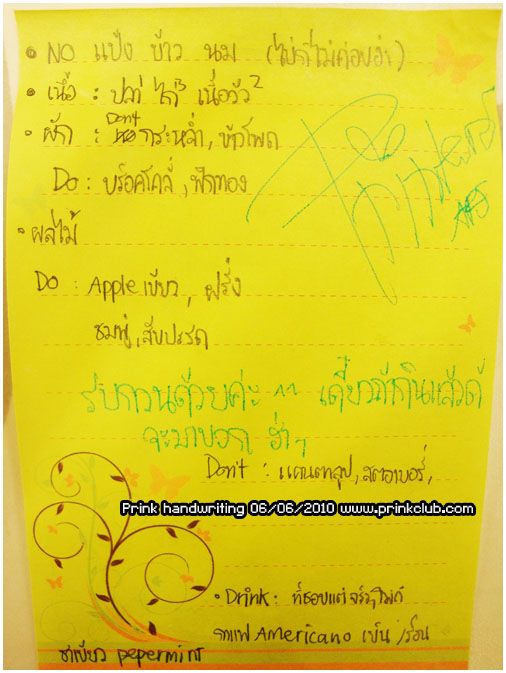 • NO แป้ง ข้าว นม (ไข่ก็ไม่ค่อยอ่ะ)
• เนื้อ : ปลา ไก่³ เนื้อวัว²
• ผัก : Don't กระหล่ำ, ข้าวโพด
Do : บร็อคโคลี่, ฟักทอง
• ผลไม้
Do : Apple เขียว, ฝรั่ง
ชมพู่, สับปะรด
รบกวนด้วยค่ะ ^^ เดี๋ยวถ้ากินแล้วดี
จะมาบอก ฮ่าๆ
Don't : แคนตาลูป, สตอเบอร์รี่,
Prink handwriting 06/06/2010 www.prinkclub.com
• Drink : ที่ชอบแต่
กาแฟ Americano เย็น/ร้อน
ชาเขียว pepermint